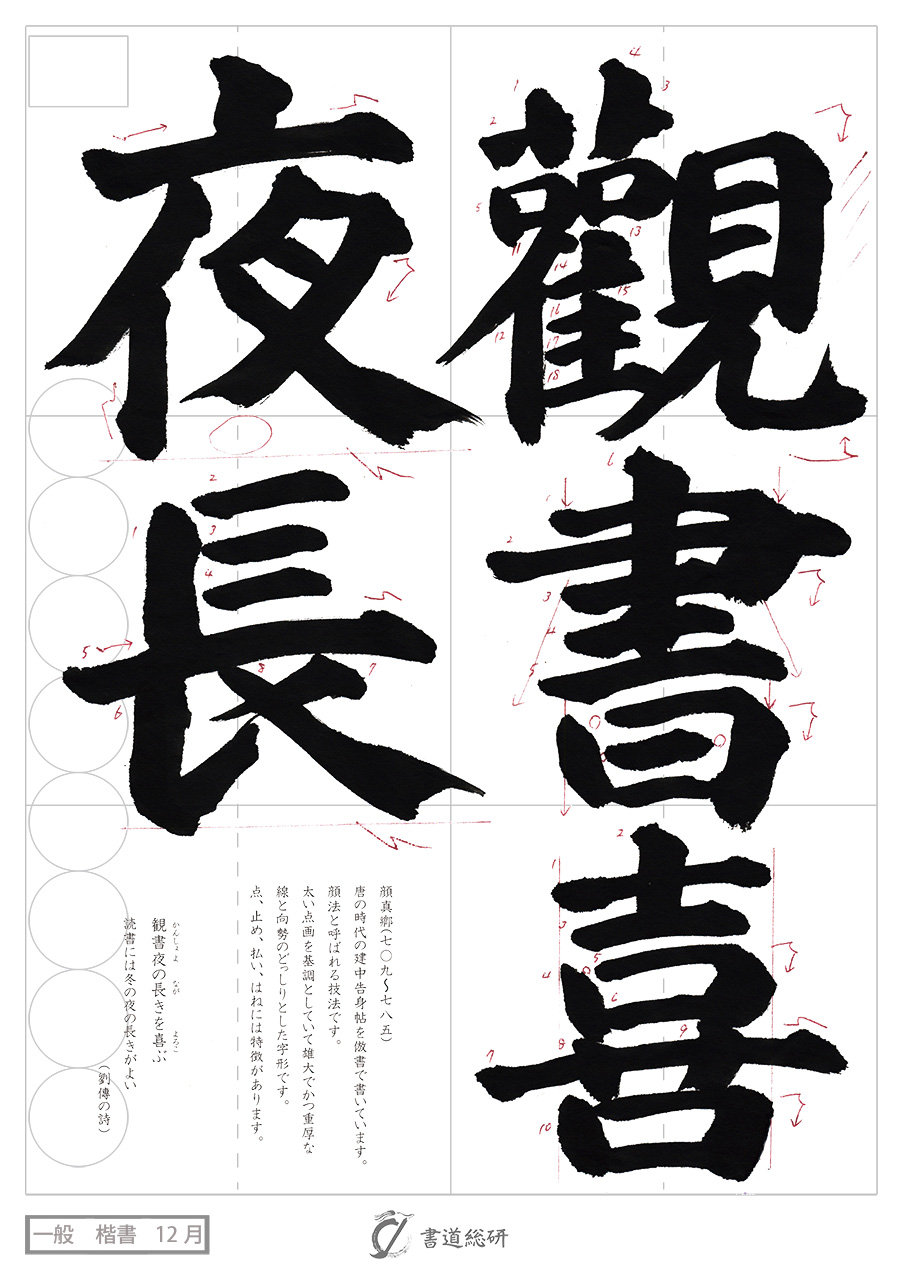 觀書喜
夜長
顔真卿(七〇九〜七八五)
唐の時代の建中告身帖を倣書で書いています。
顔法と呼ばれる技法です。
太い点画を基調としていて雄大でかつ重厚な
線と向勢のどっしりとした字形です。
点、止め、払い、はねには特徴があります。
かんしょよ なが よろこ
観書夜の長きを喜ぶ
読書には冬の夜の長きがよい
(劉傳の詩)
一般 楷書 12月
書道総研